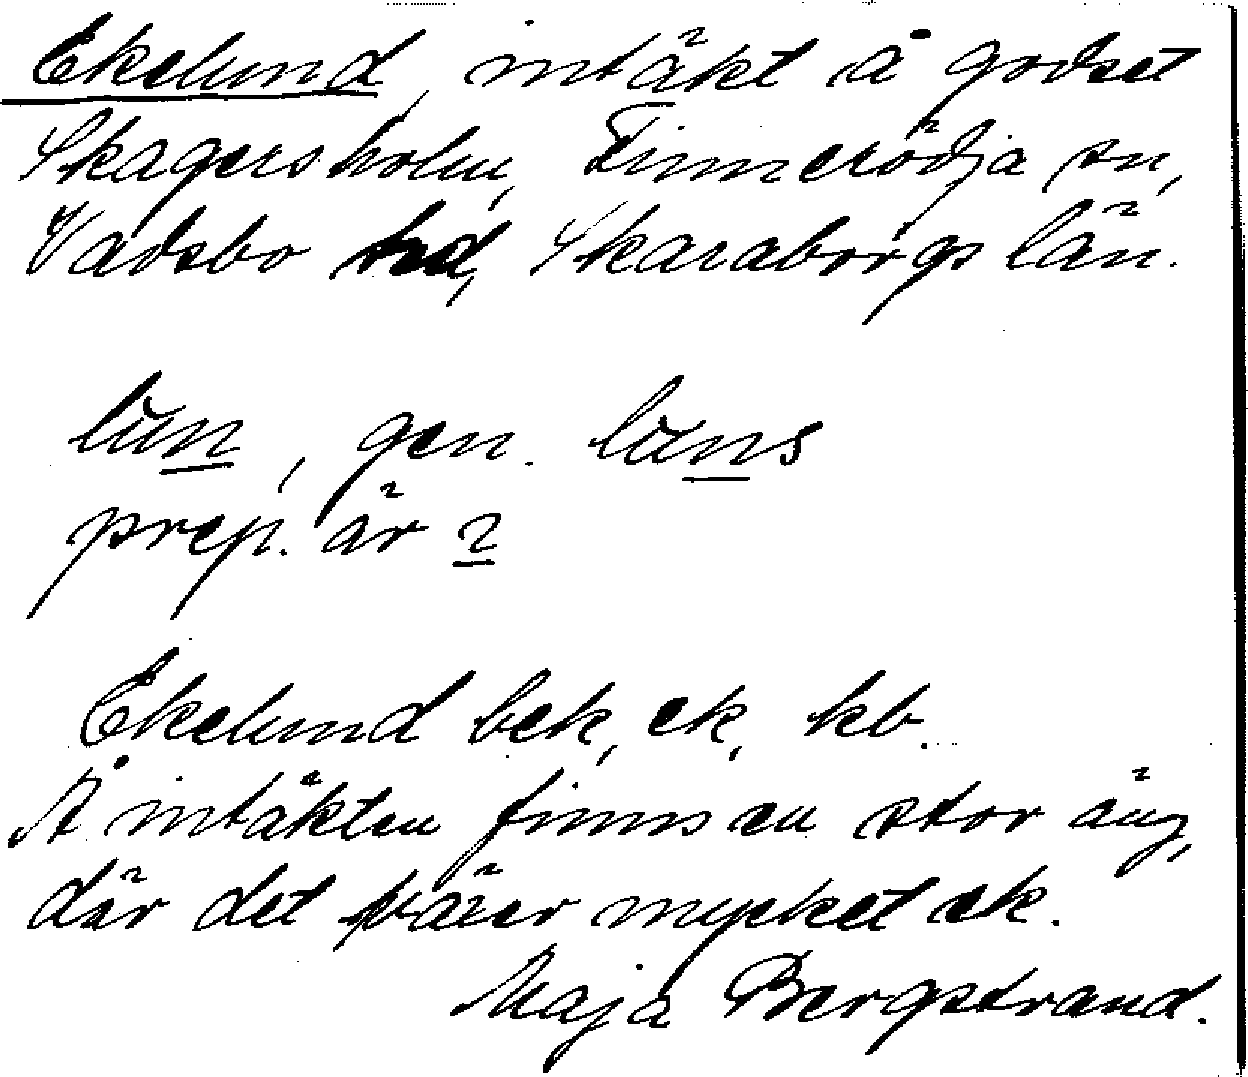 Ekelund, intäkt å godset
Skagersholm, Finnerödja sn,
Vadsbo hd, Skaraborgs län.
lun, gen. luns
prep. är 2
Ekelund bek, ek, kb.
Å intäkten finns en stor äng,
där det växer mycket ek.
Maja Bergstrand.